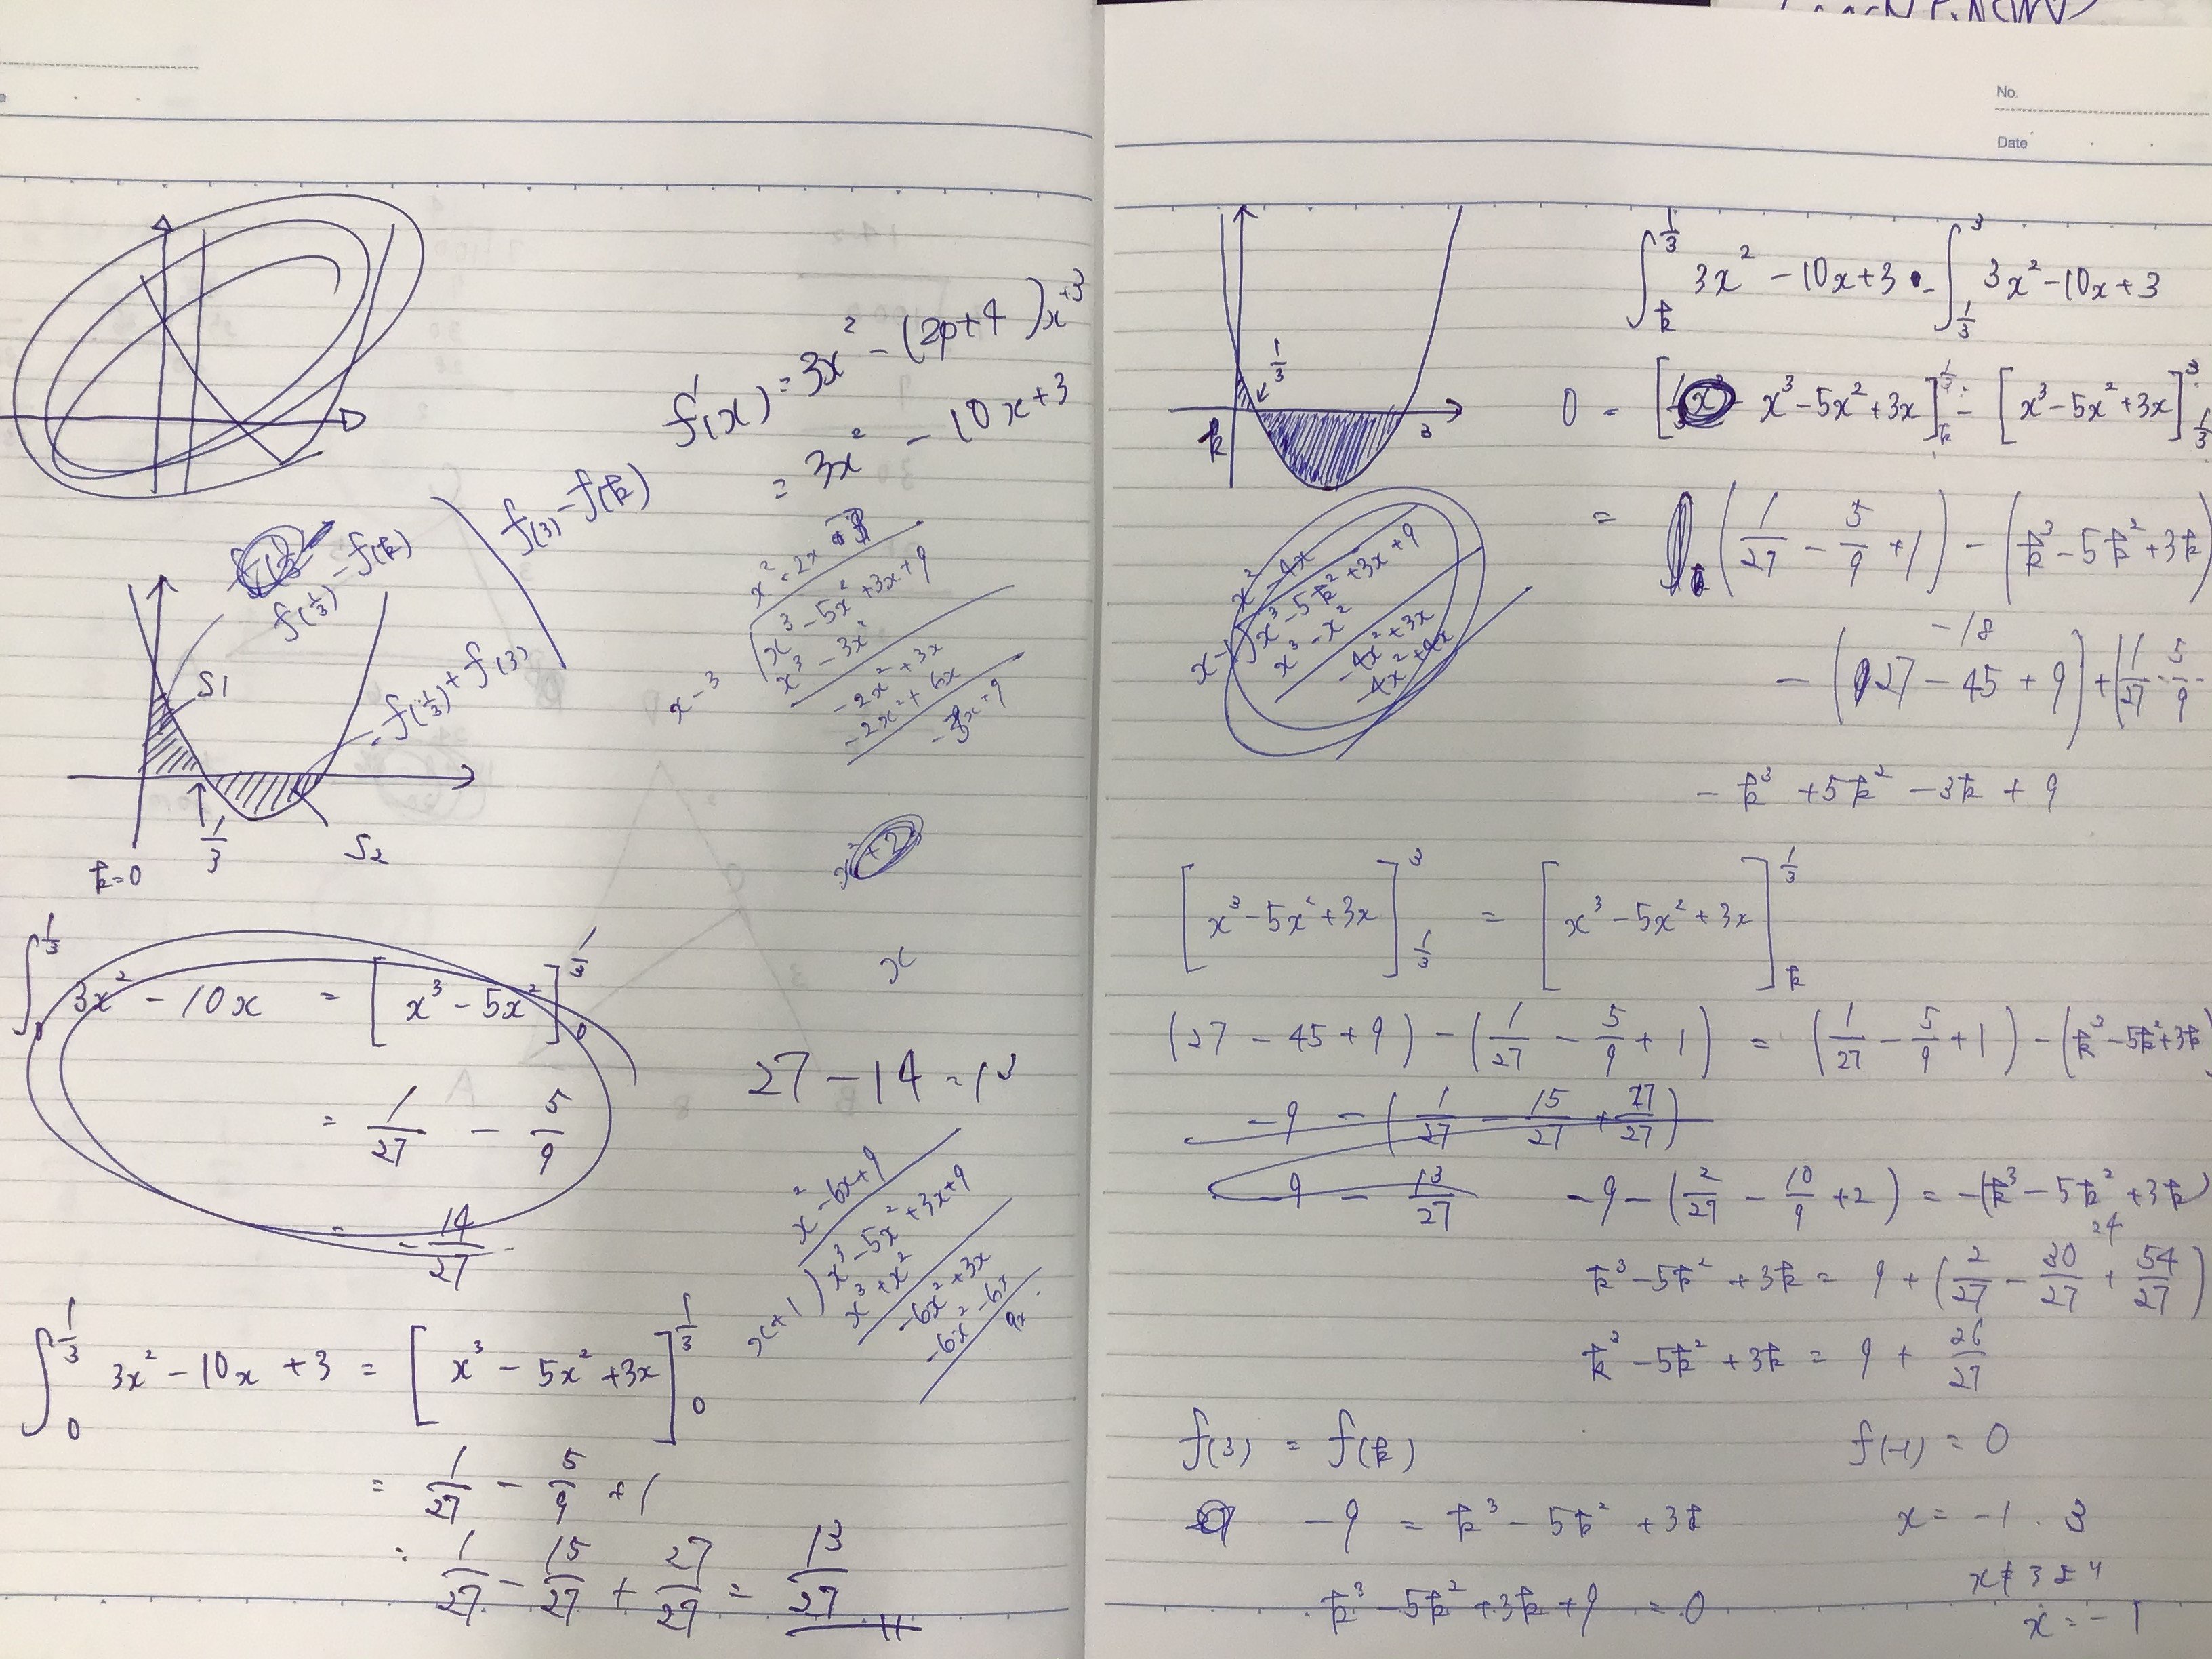 f'(x) = 3x² - (2p+4)x+3
= 3x² - 10x+3
f(3) - f(k)
f(1/3) - f(k)
-f(1/3) + f(3)
S1
1/3
S2
k=0
x² - 2x
x-3 ) x³ - 5x² + 3x + 9
x³ - 3x²
-2x² + 3x
-2x² + 6x
-3x+9
x
∫₀^{1/3} 3x² - 10x = [x³ - 5x²]₀^{1/3}
= 1/27 - 5/9
= -14/27
27 - 14 = 13
x² - 6x + 9
x+1 ) x³ - 5x² + 3x + 9
x³ + x²
-6x² + 3x
-6x² - 6x
9x
∫₀^{1/3} 3x² - 10x + 3 = [x³ - 5x² + 3x]₀^{1/3}
= 1/27 - 5/9 + 1
= 1/27 - 15/27 + 27/27 = 13/27
No.
Date
1/3
k
3
∫_k^{1/3} 3x² - 10x + 3 - ∫_{1/3}^3 3x² - 10x + 3
0 = [x³ - 5x² + 3x]_k^{1/3} - [x³ - 5x² + 3x]_{1/3}^3
= (1/27 - 5/9 + 1) - (k³ - 5k² + 3k)
-18
- (27 - 45 + 9) + (1/27 - 5/9
x² - 4x
x-1 ) x³ - 5k² + 3x + 9
x³ - x²
-4x² + 3x
-4x² + 4x
- k³ + 5k² - 3k + 9
[x³ - 5x² + 3x]_{1/3}^3 = [x³ - 5x² + 3x]_k^{1/3}
(27 - 45 + 9) - (1/27 - 5/9 + 1) = (1/27 - 5/9 + 1) - (k³ - 5k² + 3k)
-9 - (1/27 - 15/27 + 27/27)
-9 - 13/27
-9 - (2/27 - 10/9 + 2) = -(k³ - 5k² + 3k)
24
k³ - 5k² + 3k = 9 + (2/27 - 30/27 + 54/27)
k³ - 5k² + 3k = 9 + 26/27
f(3) = f(k)
f(-1) = 0
-9 = k³ - 5k² + 3k
x = -1 . 3
k³ - 5k² + 3k + 9 = 0
x = -1